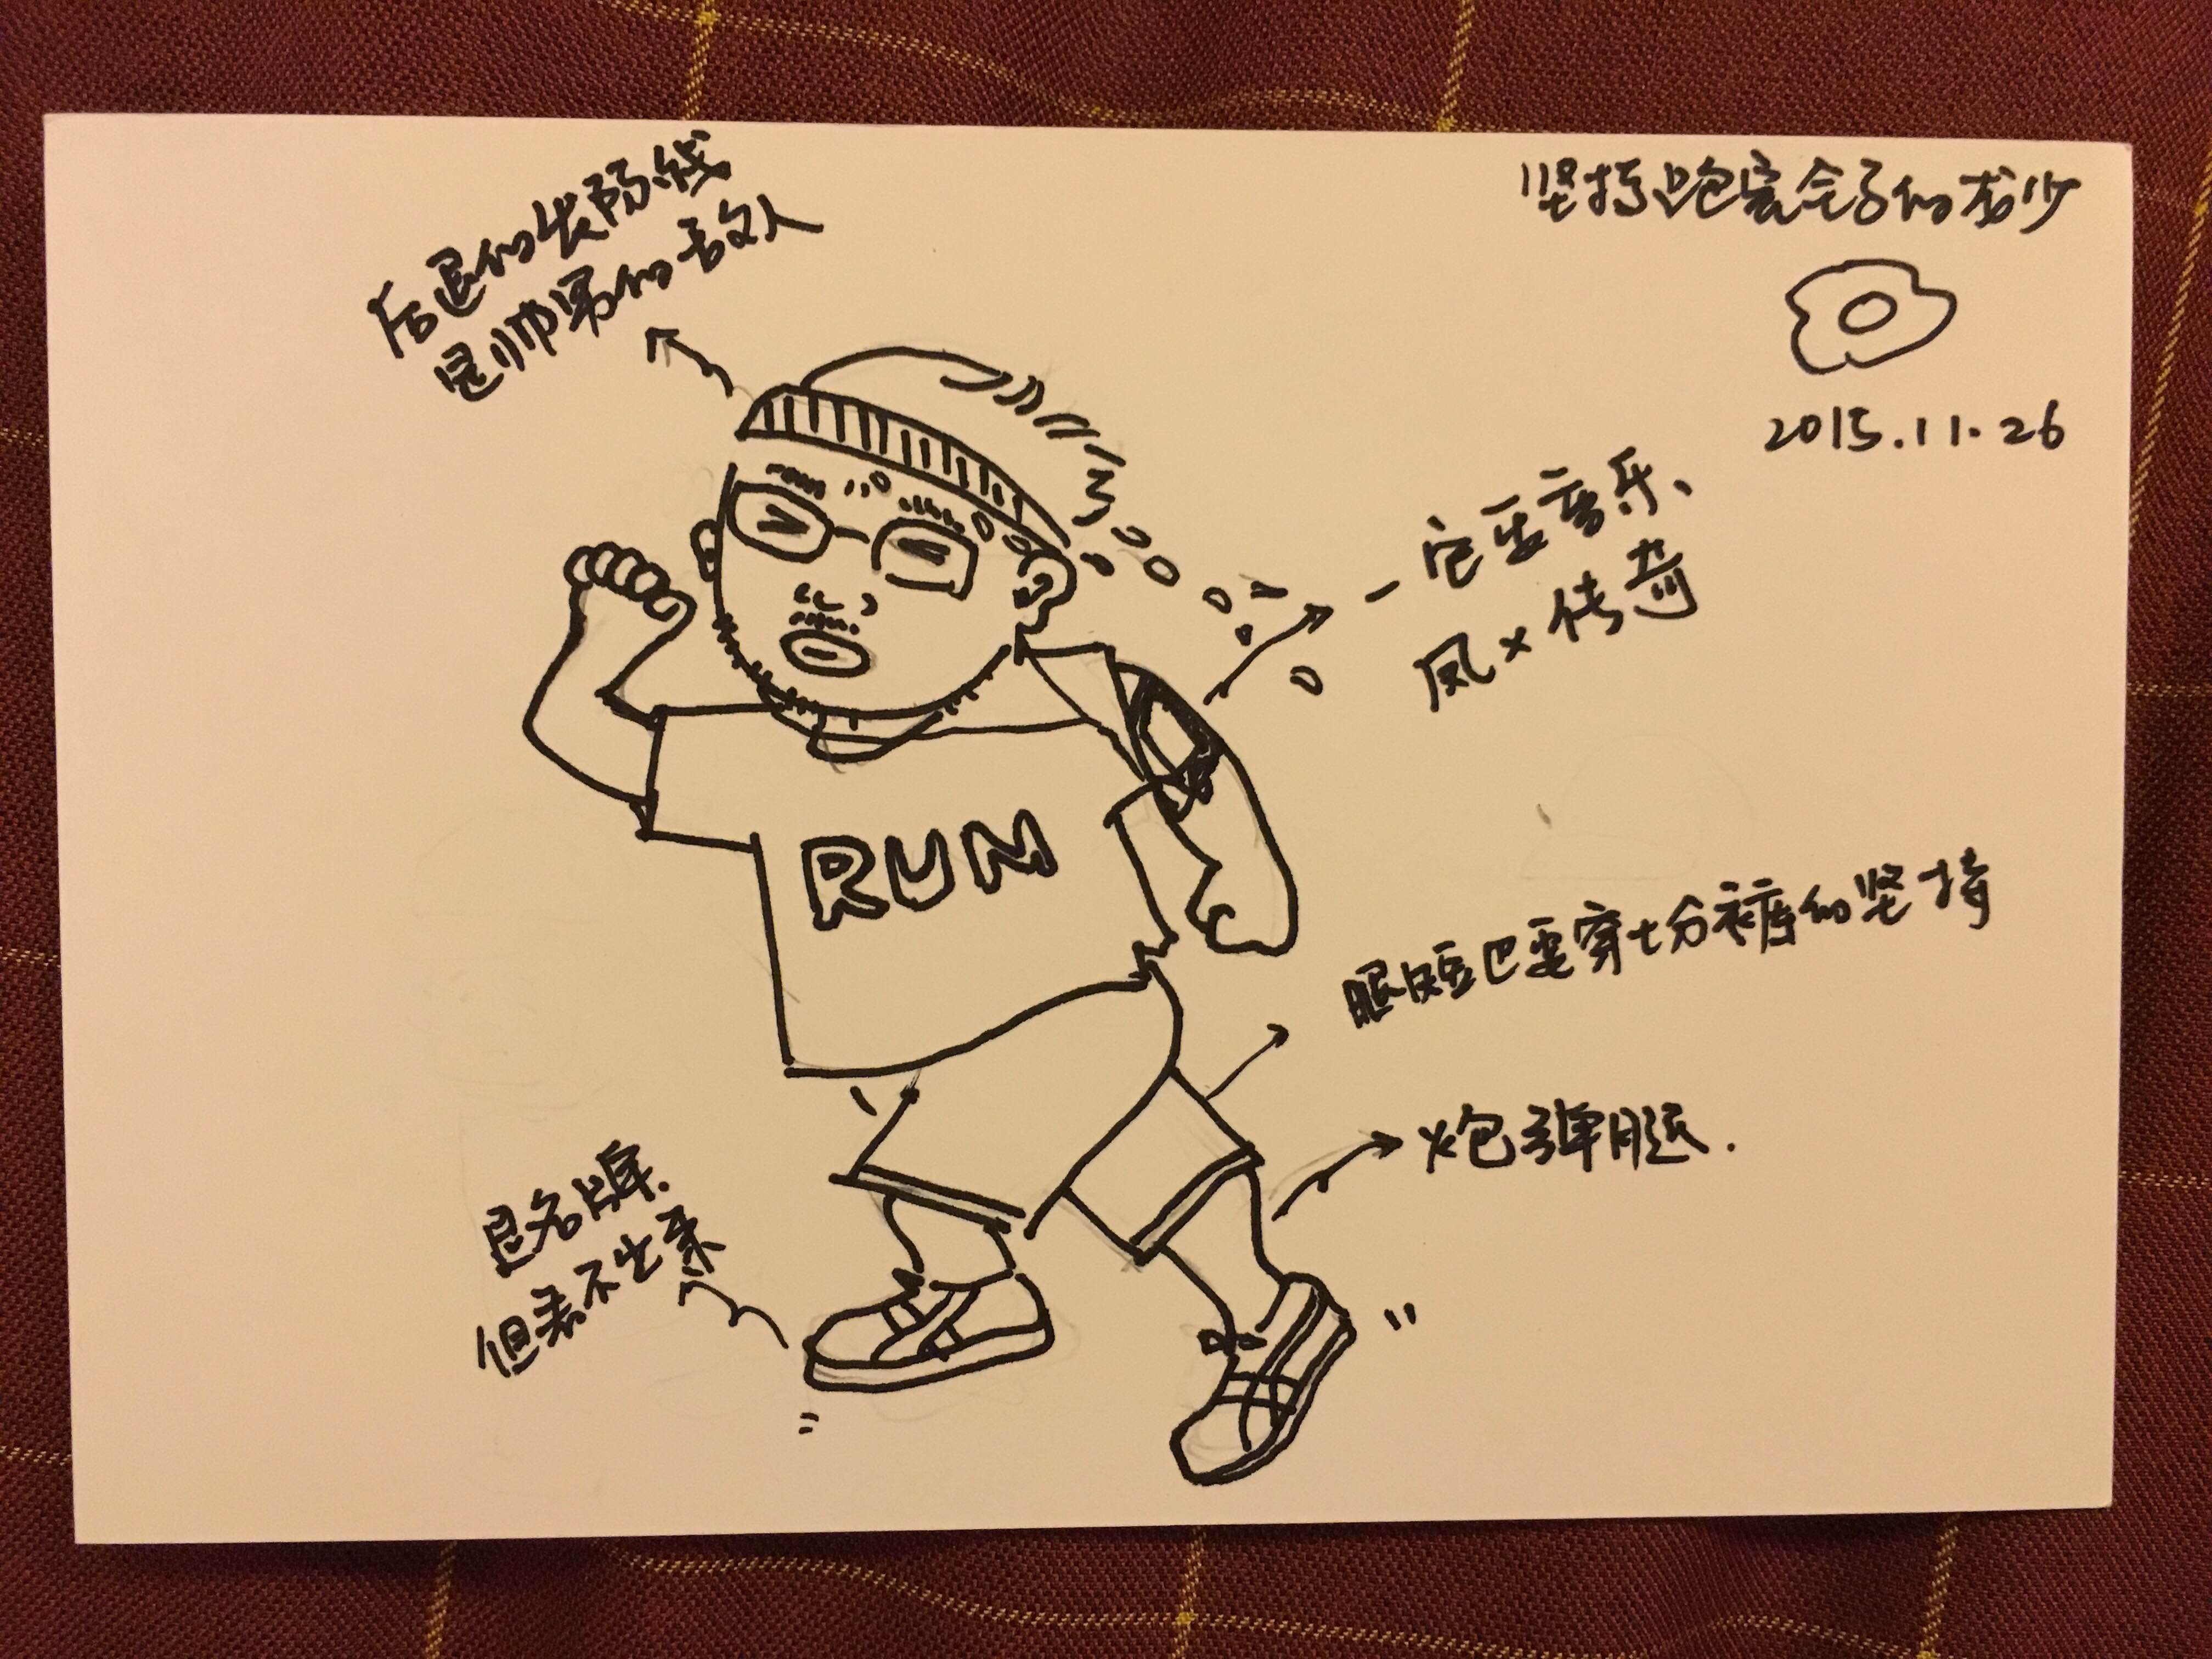 坚持跑完全马的龙少
2015.11.26
后退的发际线
是帅男的敌人
一定要音乐、
凤x传奇
RUN
腿短也要穿七分裤的坚持
炮弹腿.
是名牌.
但看不出来